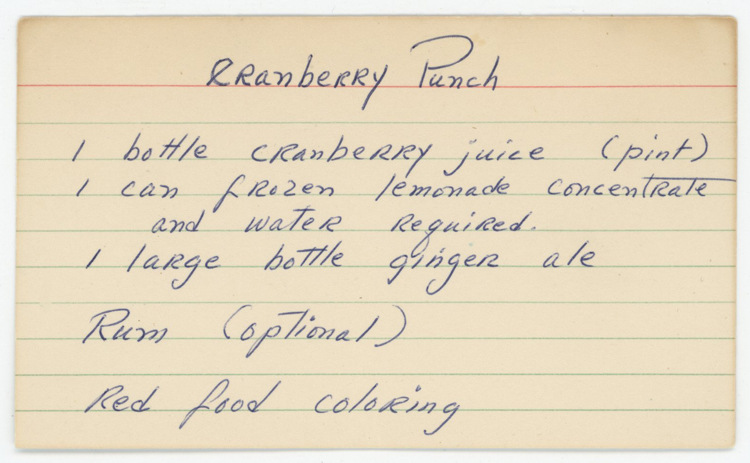 Cranberry Punch
1 bottle cranberry juice (pint)
1 can frozen lemonade concentrate
and water required.
1 large bottle ginger ale
Rum (optional)
Red food coloring